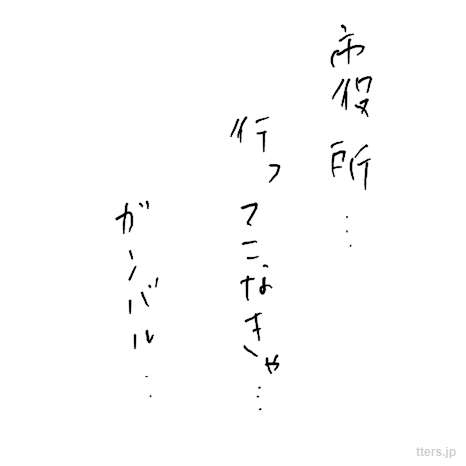 市役所…
行ってこなきゃ…
ガンバル…
tters.jp